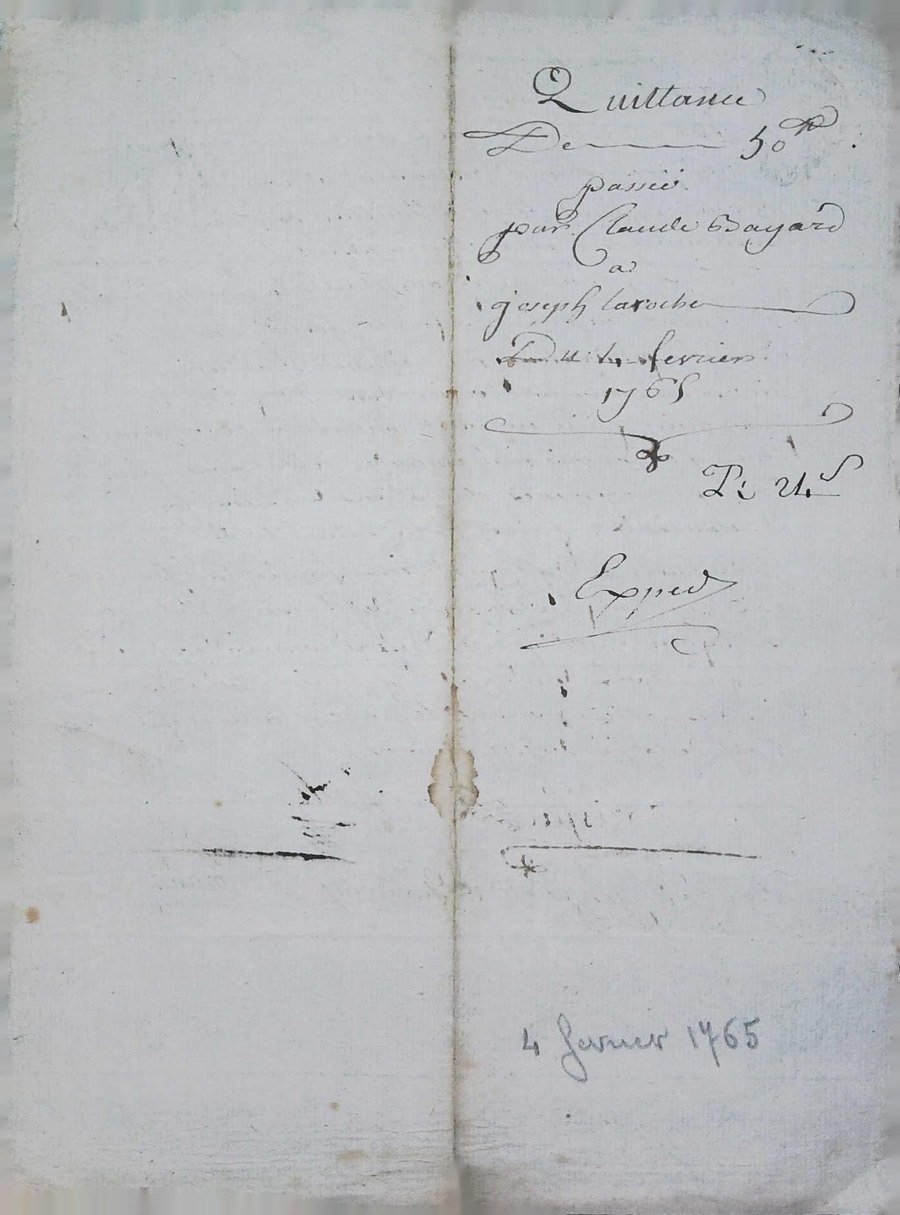 Quittance
De 50 ₶
passée
par Claude Bayard
a
joseph laroche
Du 4 fevrier
1765
Exped
4 fevrier 1765